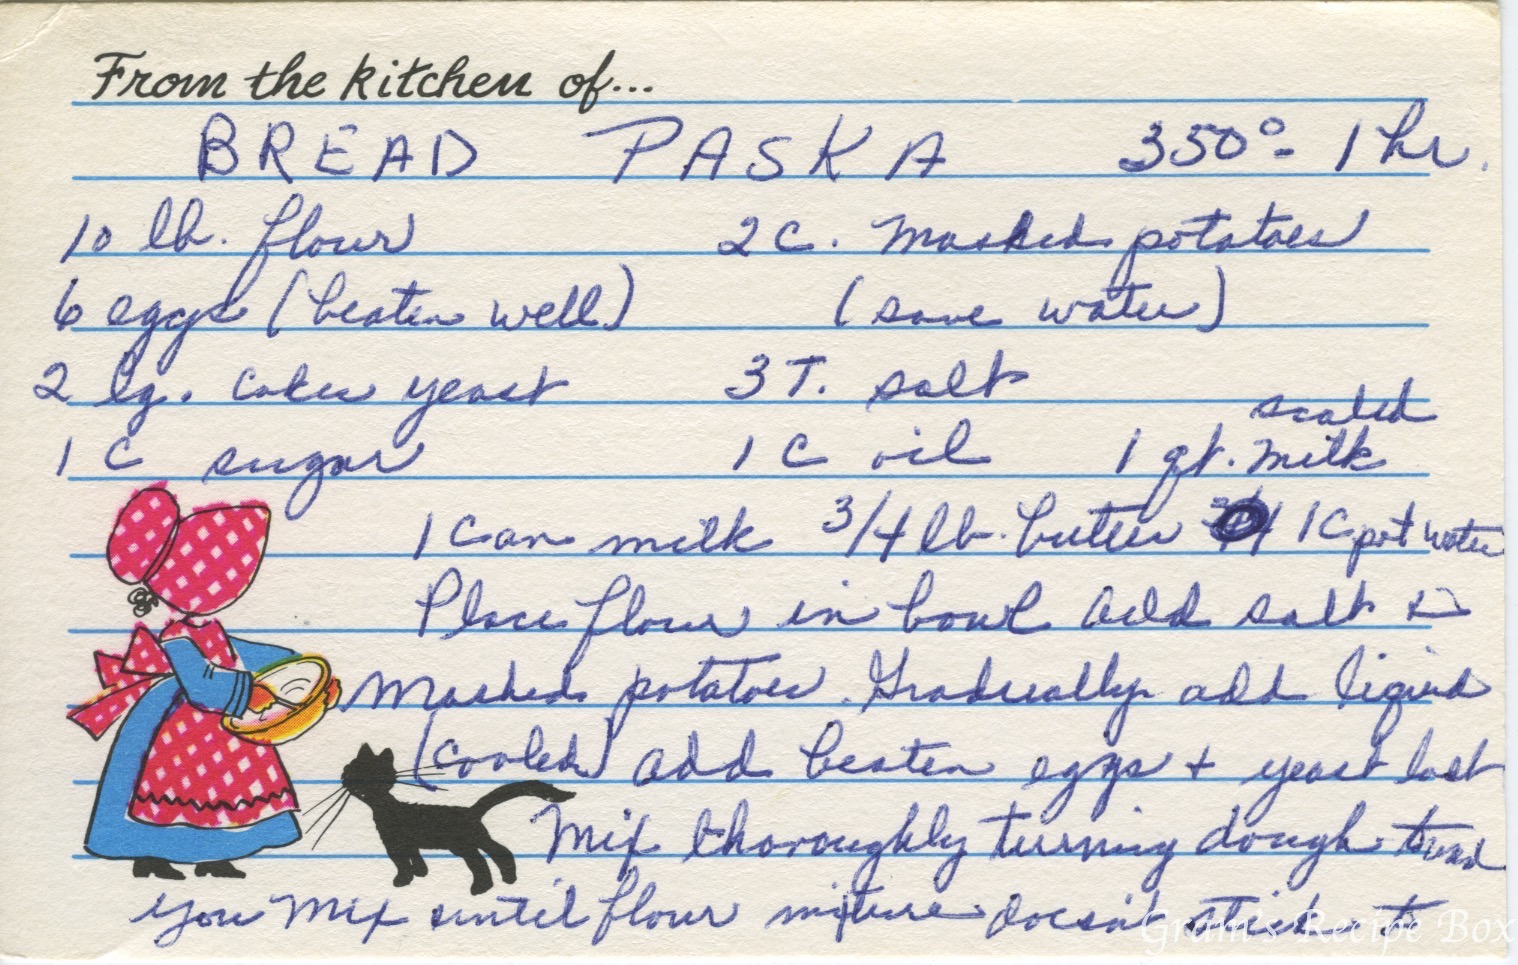 From the kitchen of...
BREAD PASKA 350° - 1 hr.
10 lb. flour 2 C. mashed potatoes
6 eggs (beaten well) (save water)
2 lg. cakes yeast 3 T. salt
scaled
1 C sugar 1 C oil 1 qt. milk
1 can milk 3/4 lb. butter 1 C pot water
Place flour in bowl add salt +
mashed potatoes. Gradually add liquid
(cooled) add beaten eggs + yeast last
Mix thoroughly turning dough toward
you Mix until flour mixture doesn't stick to
Gram's Recipe Box